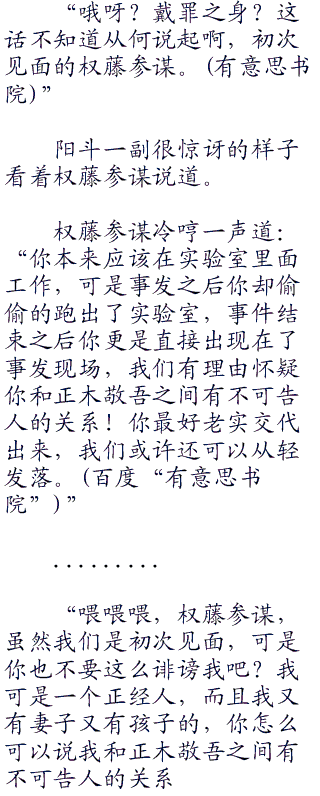 “哦呀？戴罪之身？这
话不知道从何说起啊，初次
见面的权藤参谋。(有意思书
院)”
阳斗一副很惊讶的样子
看着权藤参谋说道。
权藤参谋冷哼一声道：
“你本来应该在实验室里面
工作，可是事发之后你却偷
偷的跑出了实验室，事件结
束之后你更是直接出现在了
事发现场，我们有理由怀疑
你和正木敬吾之间有不可告
人的关系！你最好老实交代
出来，我们或许还可以从轻
发落。(百度“有意思书
院”)”
.........
“喂喂喂，权藤参谋，
虽然我们是初次见面，可是
你也不要这么诽谤我吧？我
可是一个正经人，而且我又
有妻子又有孩子的，你怎么
可以说我和正木敬吾之间有
不可告人的关系